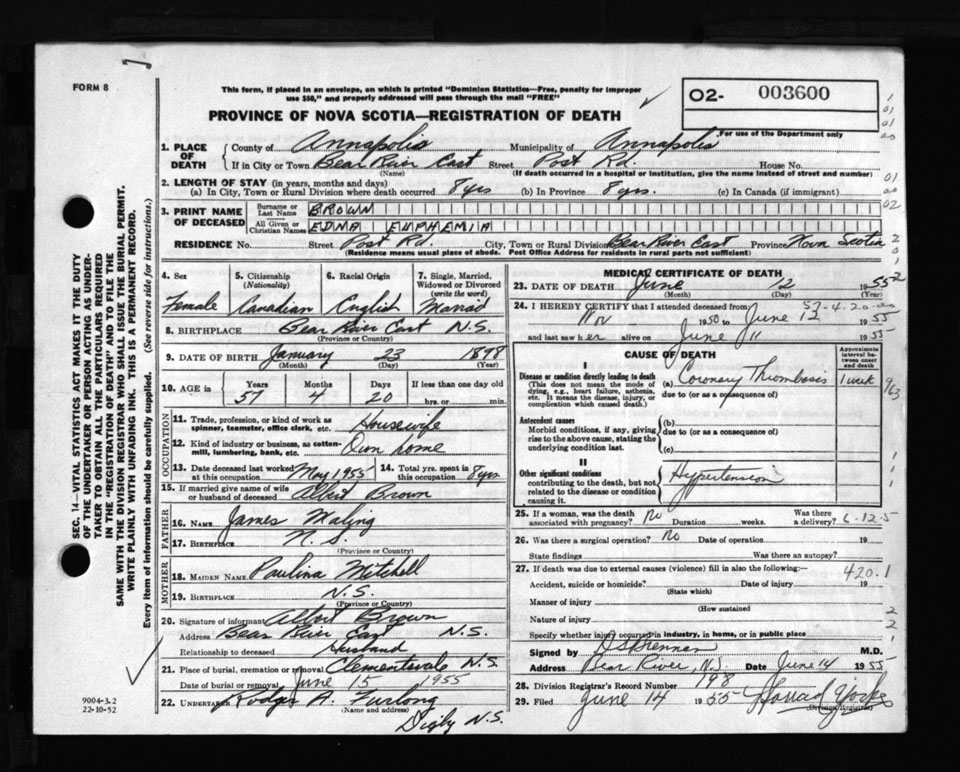 FORM 8
This form, if placed in an envelope, on which is printed "Dominion Statistics—Free, penalty for improper
use $50," and properly addressed will pass through the mail "FREE"
PROVINCE OF NOVA SCOTIA—REGISTRATION OF DEATH
O2- 003600
For use of the Department only
SEC. 14—VITAL STATISTICS ACT MAKES IT THE DUTY
OF THE UNDERTAKER OR PERSON ACTING AS UNDER-
TAKER TO OBTAIN ALL THE PARTICULARS REQUIRED
IN THE "REGISTRATION OF DEATH" AND TO FILE THE
SAME WITH THE DIVISION REGISTRAR WHO SHALL ISSUE THE BURIAL PERMIT.
WRITE PLAINLY WITH UNFADING INK. THIS IS A PERMANENT RECORD.
Every item of information should be carefully supplied. (See reverse side for instructions.)
1. PLACE OF DEATH County of Annapolis Municipality of Annapolis
If in City or Town Bear River East Street Post Rd. House No.
(Name) (If death occurred in a hospital or institution, give the name instead of street and number)
2. LENGTH OF STAY (in years, months and days)
(a) In City, Town or Rural Division where death occurred 8 yrs (b) In Province 8 yrs. (c) In Canada (if immigrant)
3. PRINT NAME OF DECEASED Surname or Last Name BROWN
All Given or Christian Names EDNA EUPHEMIA
RESIDENCE No. Street Post Rd. City, Town or Rural Division Bear River East Province Nova Scotia
(Residence means usual place of abode. Post Office Address for residents in rural parts not sufficient)
4. Sex 5. Citizenship (Nationality) 6. Racial Origin 7. Single, Married, Widowed or Divorced (write the word)
Female Canadian English Married
8. BIRTHPLACE Bear River East N.S.
(Province or Country)
9. DATE OF BIRTH January 23 1898
(Month) (Day) (Year)
10. AGE in Years Months Days If less than one day old
57 4 20 hrs. or min.
OCCUPATION
11. Trade, profession, or kind of work as spinner, teamster, office clerk, etc. Housewife
12. Kind of industry or business, as cotton-mill, lumbering, bank, etc. Own home
13. Date deceased last worked at this occupation May 1955 14. Total yrs. spent in this occupation 8 yrs
15. If married give name of wife or husband of deceased Albert Brown
FATHER
16. NAME James Maling
17. BIRTHPLACE N.S.
(Province or Country)
MOTHER
18. MAIDEN NAME Paulina Mitchell
19. BIRTHPLACE N.S.
(Province or Country)
20. Signature of informant Albert Brown
Address Bear River East N.S.
Relationship to deceased Husband
21. Place of burial, cremation or removal Clementsvale N.S.
Date of burial or removal June 15 1955
22. UNDERTAKER A. Furlong
(Name and address)
Digby N.S.
9004-3.2
22-10-52
MEDICAL CERTIFICATE OF DEATH
23. DATE OF DEATH June 12 1955
(Month) (Day)
24. I HEREBY CERTIFY that I attended deceased from
Nov 1950 to June 12 1955
and last saw her alive on June 11 1955
CAUSE OF DEATH
Approximate interval between onset and death
I
Disease or condition directly leading to death (a) Coronary Thrombosis 1 week
(This does not mean the mode of dying, e.g., heart failure, asthenia, etc. It means the disease, injury, or complication which caused death.) due to (or as a consequence of)
Antecedent causes
Morbid conditions, if any, giving rise to the above cause, stating the underlying condition last. (b)
due to (or as a consequence of)
(c)
II
Other significant conditions contributing to the death, but not related to the disease or condition causing it. Hypertension
25. If a woman, was the death associated with pregnancy? No Duration weeks. Was there a delivery?
26. Was there a surgical operation? No Date of operation 19
State findings Was there an autopsy?
27. If death was due to external causes (violence) fill in also the following:— 420.1
Accident, suicide or homicide? Date of injury 19
(State which)
Manner of injury
(How sustained
Nature of injury
Specify whether injury occurred in industry, in home, or in public place
Signed by M.D.
Address Bear River, N.S. Date June 14 1955
28. Division Registrar's Record Number 198
29. Filed June 14 1955
(Division Registrar)